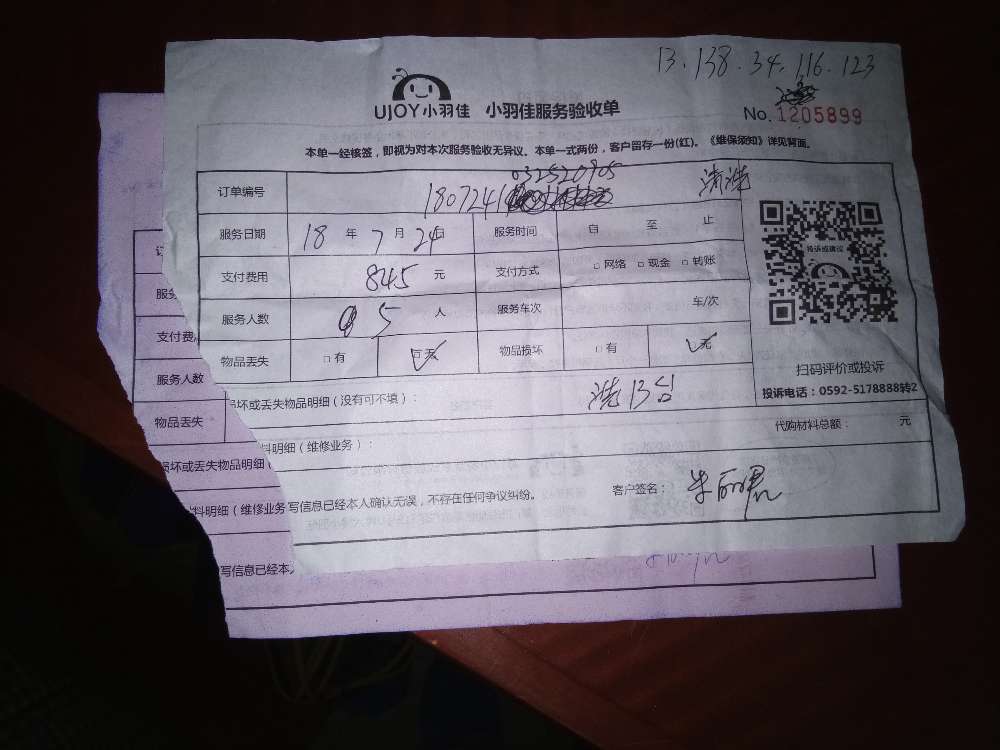 13.138.34.116.123
UJOY小羽佳 小羽佳服务验收单
No. 1205899
本单一经核签,即视为对本次服务验收无异议。本单一式两份,客户留存一份(红)。《维保须知》详见背面。
032520905
订单编号 180724 清洗
服务日期 18 年 7 月 24 日 服务时间 自 至 止
投诉或建议
支付费用 845 元 支付方式 □ 网络 □ 现金 □ 转账
服务人数 5 人 服务车次 车/次
物品丢失 □ 有 □ 无 物品损坏 □ 有 无
扫码评价或投诉
投诉电话:0592-5178888转2
损坏或丢失物品明细(没有可不填): 洗13台
料明细(维修业务): 代购材料总额: 元
写信息已经本人确认无误,不存在任何争议纠纷。 客户签名:
服务
支付费
服务人数
物品丢失
损坏或丢失物品明细(
料明细(维修业务
写信息已经本